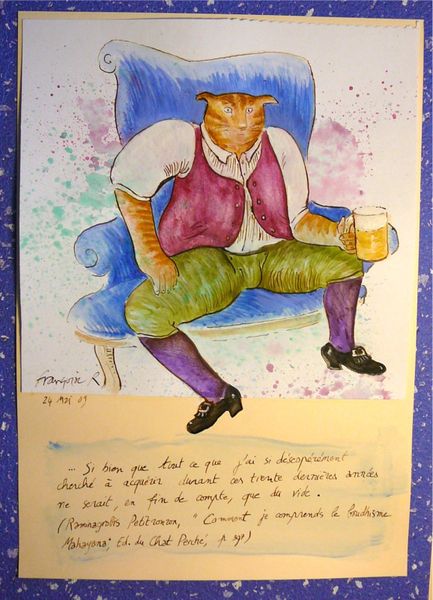 françoise P.
24 Mai 09
... Si bien que tout ce que j'ai si désespérément
cherché à acquérir durant ces trente dernières années
ne serait, en fin de compte, que du vide.
(Ramnagrobis Petitronron, "Comment je comprends le Boudhisme
Mahayana", Ed. du Chat Perché, p